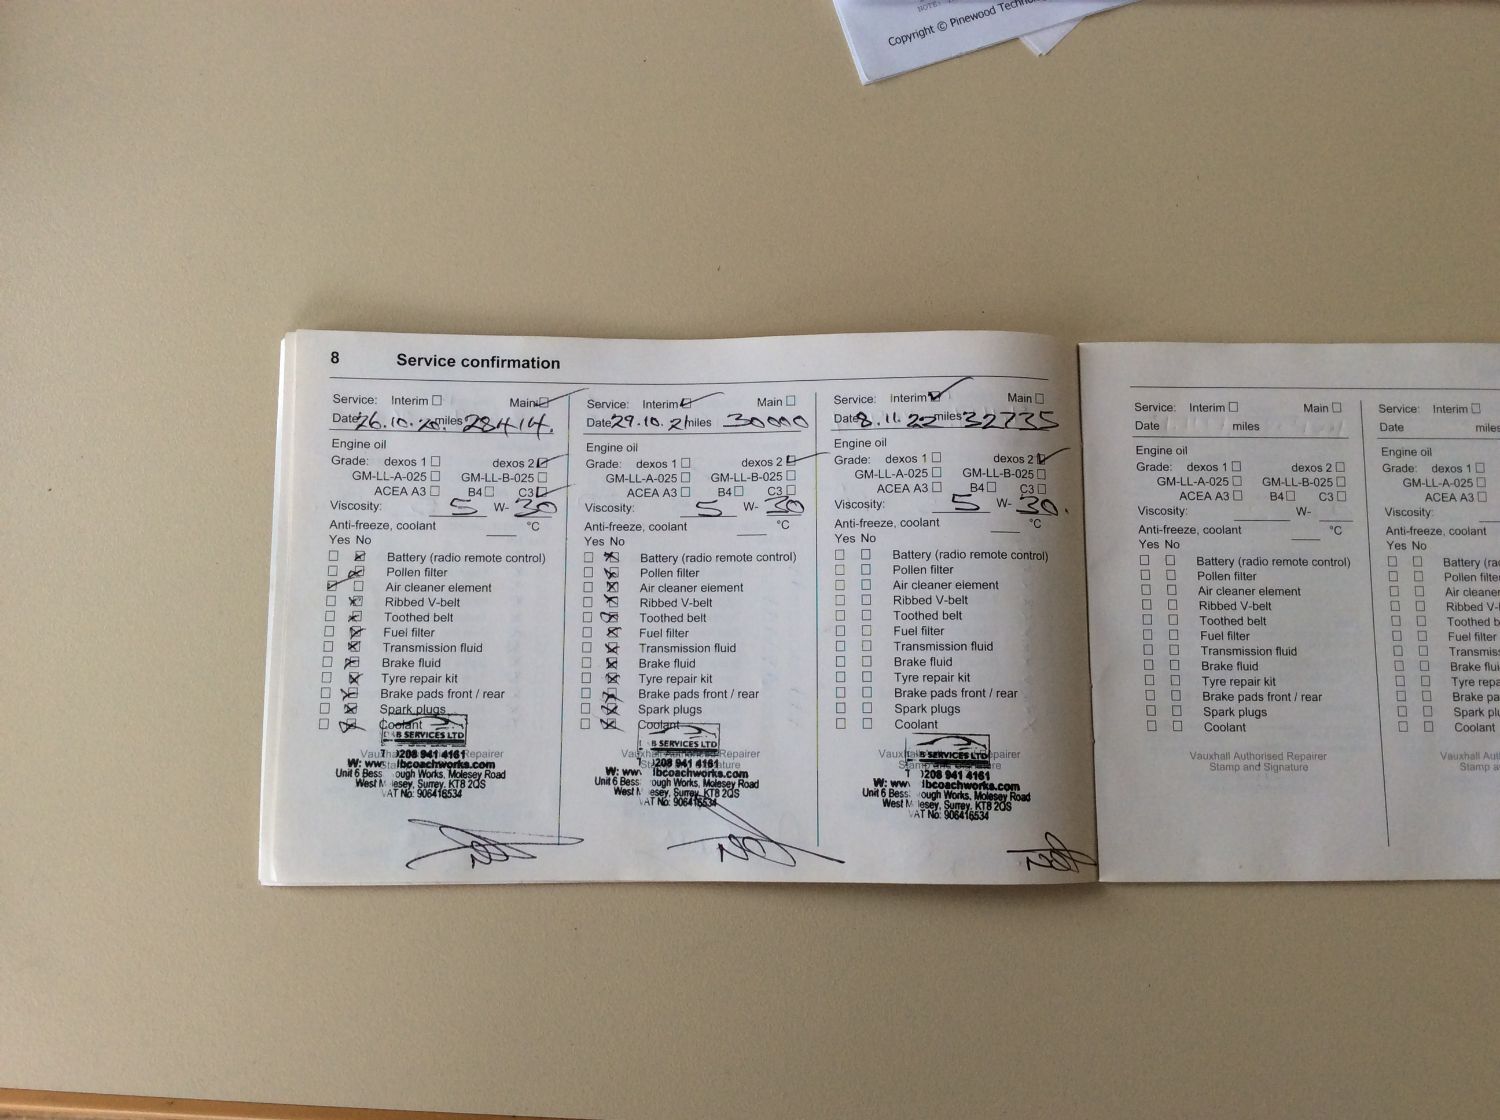 Copyright © Pinewood
8 Service confirmation
Service: Interim ☐ Main ☑
Date 26.10.20 miles 28414.
Engine oil
Grade: dexos 1 ☐ dexos 2 ☑
GM-LL-A-025 ☐ GM-LL-B-025 ☐
ACEA A3 ☐ B4 ☐ C3 ☑
Viscosity: 5 W- 30
Anti-freeze, coolant °C
Yes No
Battery (radio remote control)
Pollen filter
Air cleaner element
Ribbed V-belt
Toothed belt
Fuel filter
Transmission fluid
Brake fluid
Tyre repair kit
Brake pads front / rear
Spark plugs
Coolant
B SERVICES LTD
208 941 4161
W: www lbcoachworks.com
Unit 6 Bess ough Works, Molesey Road
West M lesey, Surrey. KT8 2QS
VAT No: 906416534
Service: Interim ☑ Main ☐
Date 29.10.21 miles 30000
Engine oil
Grade: dexos 1 ☐ dexos 2 ☑
GM-LL-A-025 ☐ GM-LL-B-025 ☐
ACEA A3 ☐ B4 ☐ C3 ☑
Viscosity: 5 W- 30
Anti-freeze, coolant °C
Yes No
Battery (radio remote control)
Pollen filter
Air cleaner element
Ribbed V-belt
Toothed belt
Fuel filter
Transmission fluid
Brake fluid
Tyre repair kit
Brake pads front / rear
Spark plugs
Coolant
B SERVICES LTD
208 941 4161
W: www lbcoachworks.com
Unit 6 Bess ough Works, Molesey Road
West M lesey, Surrey. KT8 2QS
VAT No: 906416534
Service: Interim ☑ Main ☐
Date 8.11.22 miles 32735
Engine oil
Grade: dexos 1 ☐ dexos 2 ☑
GM-LL-A-025 ☐ GM-LL-B-025 ☐
ACEA A3 ☐ B4 ☐ C3 ☐
Viscosity: 5 W- 30.
Anti-freeze, coolant °C
Yes No
Battery (radio remote control)
Pollen filter
Air cleaner element
Ribbed V-belt
Toothed belt
Fuel filter
Transmission fluid
Brake fluid
Tyre repair kit
Brake pads front / rear
Spark plugs
Coolant
B SERVICES LTD
208 941 4161
W: www lbcoachworks.com
Unit 6 Bess ough Works, Molesey Road
West M lesey, Surrey. KT8 2QS
VAT No: 906416534
Service: Interim ☐ Main ☐
Date miles
Engine oil
Grade: dexos 1 ☐ dexos 2 ☐
GM-LL-A-025 ☐ GM-LL-B-025 ☐
ACEA A3 ☐ B4 ☐ C3 ☐
Viscosity: W-
Anti-freeze, coolant °C
Yes No
Battery (radio remote control)
Pollen filter
Air cleaner element
Ribbed V-belt
Toothed belt
Fuel filter
Transmission fluid
Brake fluid
Tyre repair kit
Brake pads front / rear
Spark plugs
Coolant
Vauxhall Authorised Repairer
Stamp and Signature
Service: Interim ☐
Date miles
Engine oil
Grade: dexos 1 ☐
GM-LL-A-025 ☐
ACEA A3 ☐
Viscosity:
Anti-freeze, coolant
Yes No
Battery (ra
Pollen filte
Air cleaner
Ribbed V-
Toothed b
Fuel filter
Transmiss
Brake flui
Tyre repa
Brake pa
Spark plu
Coolant
Vauxhall Aut
Stamp a